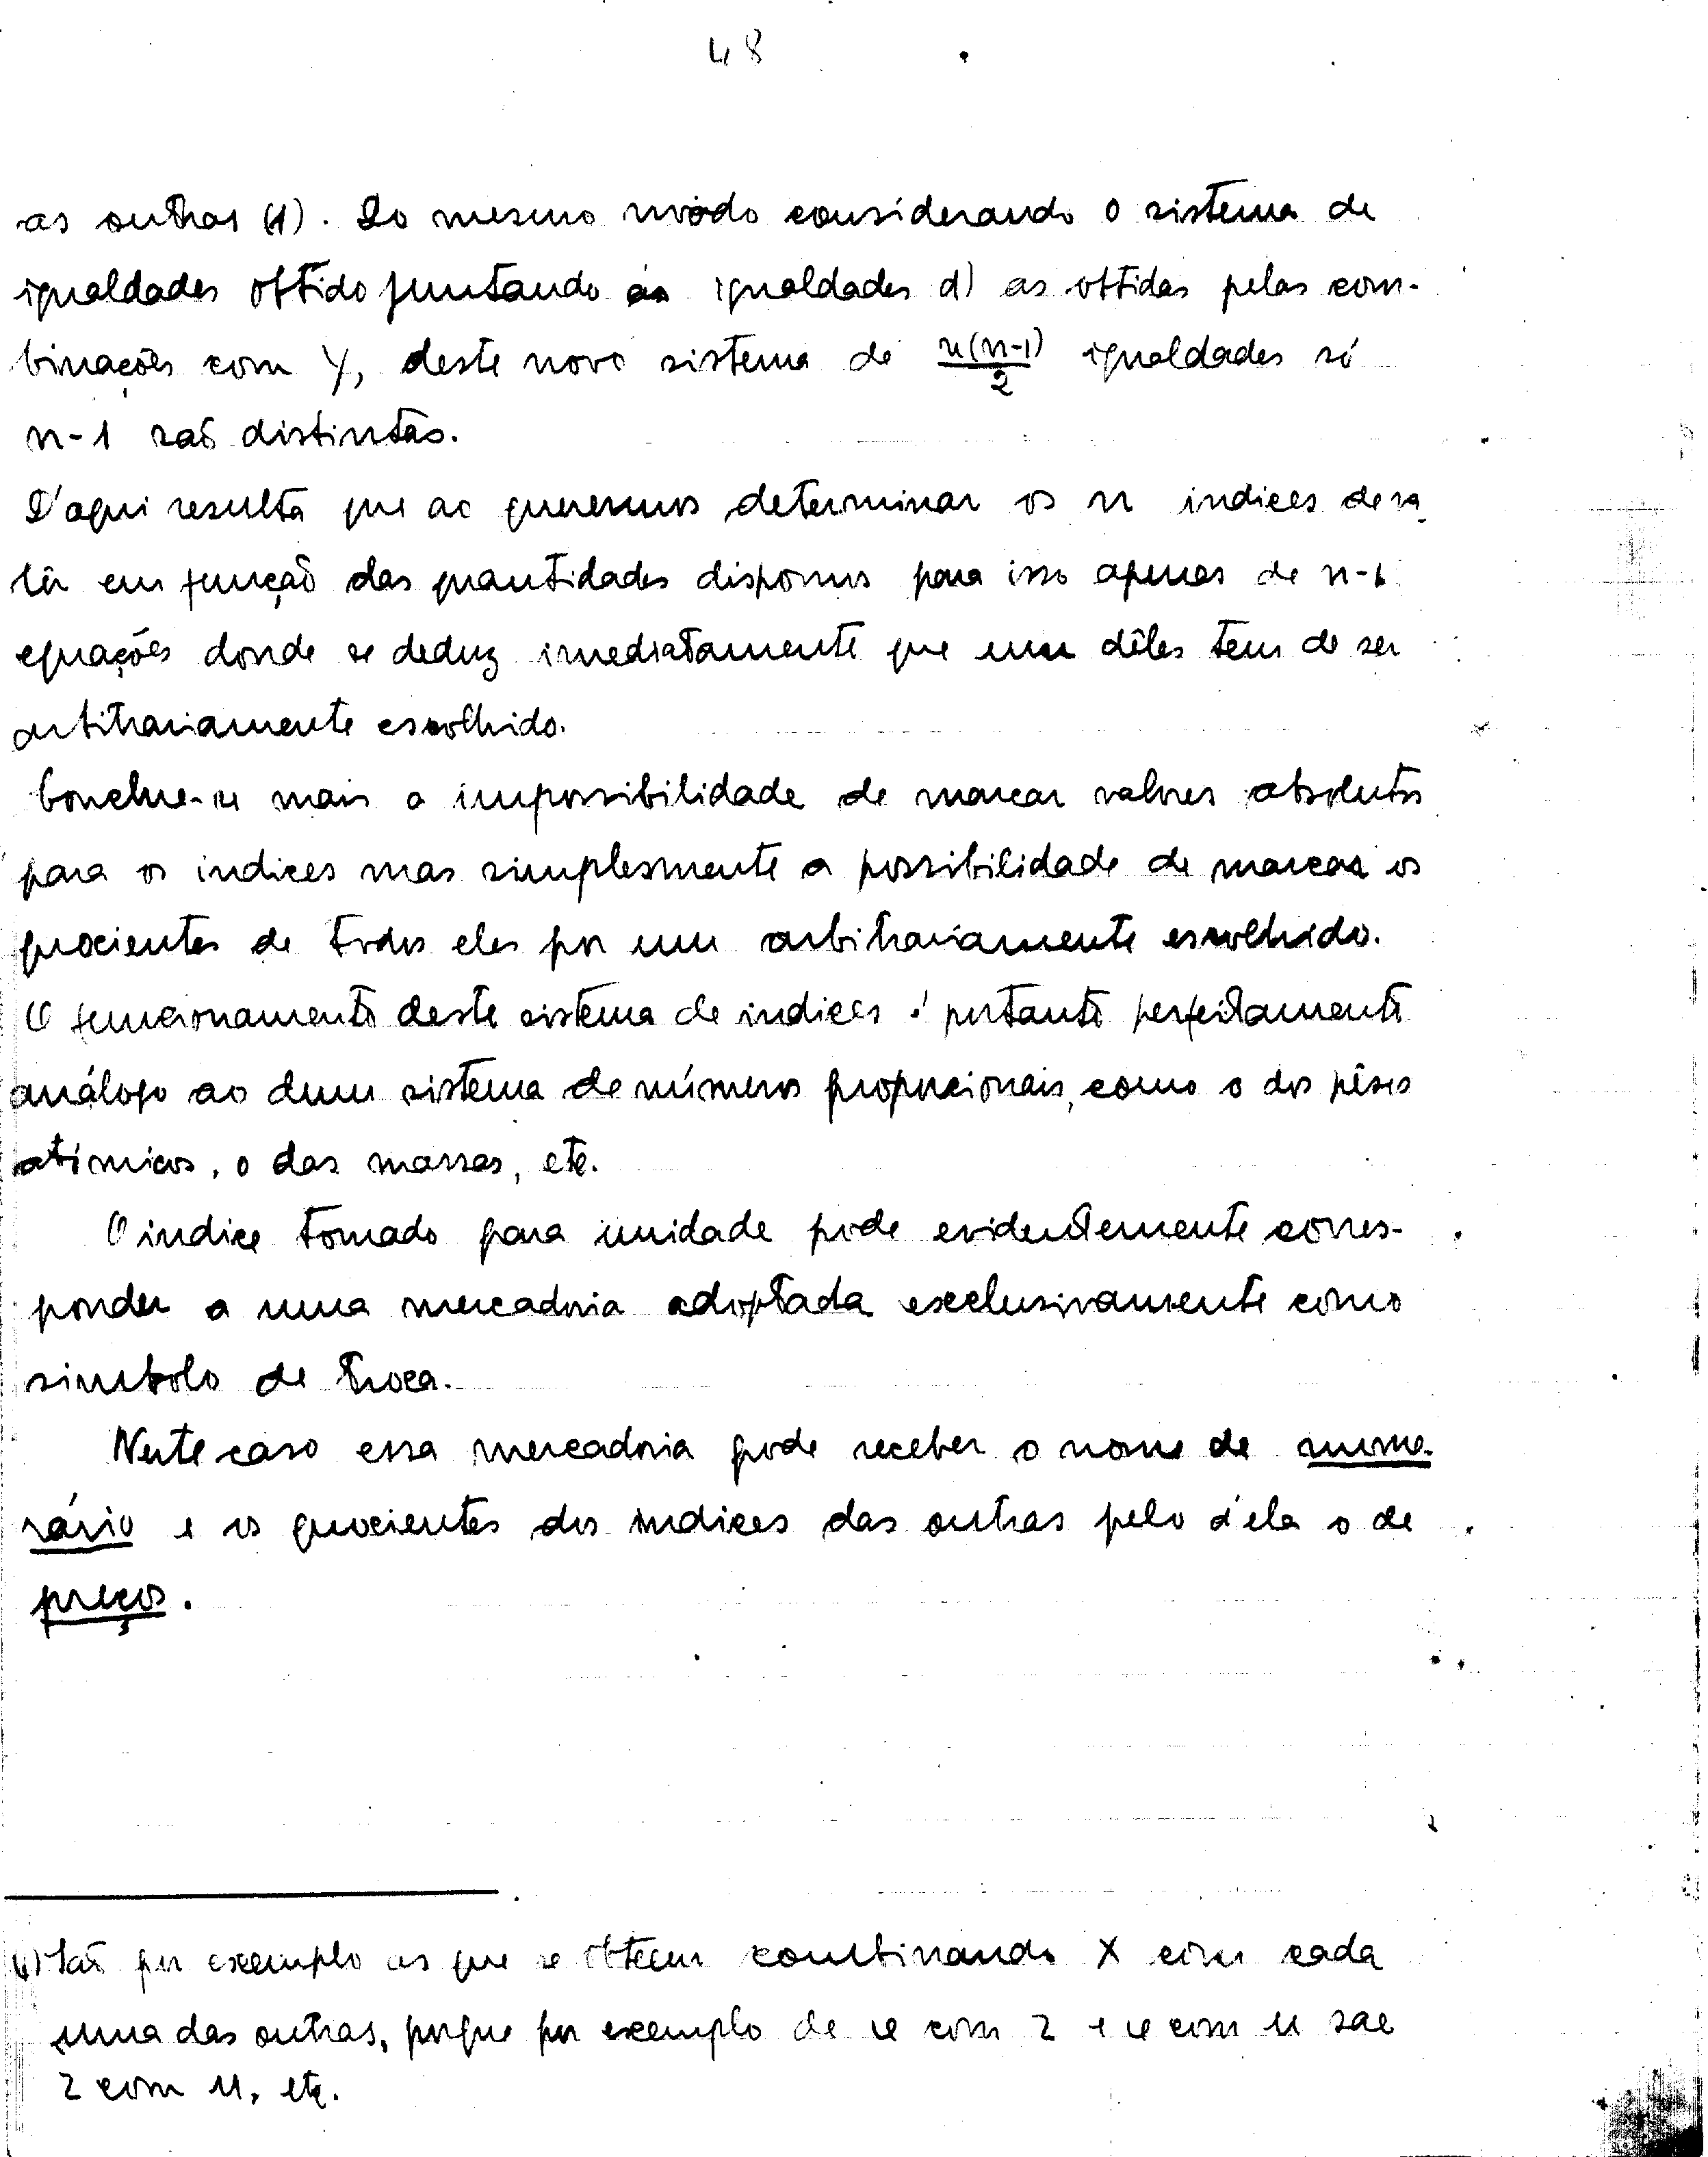 48
as outras (1). Do mesmo modo considerando o sistema de
igualdades obtido juntando ás igualdades d) as obtidas pelas com-
binações com Y, deste novo sistema de n(n-1)/2 igualdades só
n-1 saõ distintas.
D'aqui resulta que ao querermos determinar os n indices de va
lôr em funçaõ das quantidades dispomos para isso apenas de n-1
equações donde se deduz imediatamente que um dêles tem de ser
arbitrariamente escolhido.
Conclue-se mais a impossibilidade de marcar valores absolutos
para os indices mas simplesmente a possibilidade de marcar os
quocientes de todos eles por um arbitrariamente escolhido.
O funcionamento deste sistema de indices é portanto perfeitamente
análogo ao dum sistema de números proporcionais, como o dos pêsos
atómicos, o das massas, etc.
O indice tomado para unidade pode evidentemente corres-
ponder a uma mercadoria adoptada exclusivamente como
simbolo de troca.
Neste caso essa mercadoria pode receber o nome de nume-
rário e os quocientes dos indices das outras pelo d'ela o de
preços.
(1) Saõ por exemplo as que se obteem combinando X com cada
uma das outras, porque por exemplo de x com z e x com u sae
z com u, etc.